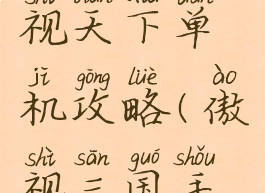 shì tiān xià dān
视天下单
jī gōng lüè ào
机攻略(傲
shì sān guó shǒu
视三国手